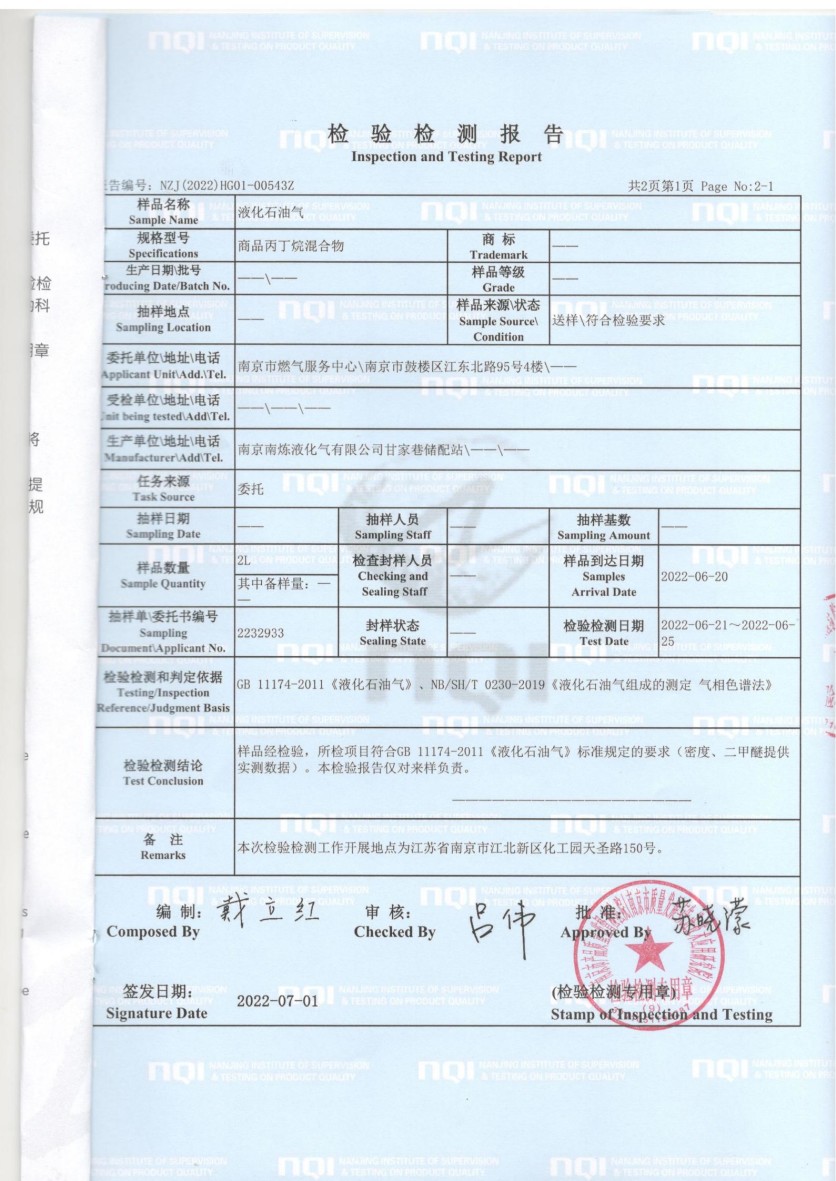 检验检测报告
Inspection and Testing Report
告编号: NZJ(2022)HG01-00543Z
共2页第1页 Page No:2-1
样品名称
Sample Name
液化石油气
规格型号
Specifications
商品丙丁烷混合物
商 标
Trademark
——
生产日期\批号
roducing Date/Batch No.
——\——
样品等级
Grade
——
抽样地点
Sampling Location
——
样品来源\状态
Sample Source\
Condition
送样\符合检验要求
委托单位\地址\电话
Applicant Unit\Add.\Tel.
南京市燃气服务中心\南京市鼓楼区江东北路95号4楼\——
受检单位\地址\电话
nit being tested\Add\Tel.
——\——\——
生产单位\地址\电话
Manufacturer\Add\Tel.
南京南炼液化气有限公司甘家巷储配站\——\——
任务来源
Task Source
委托
抽样日期
Sampling Date
——
抽样人员
Sampling Staff
——
抽样基数
Sampling Amount
——
样品数量
Sample Quantity
2L
其中备样量: —
—
检查封样人员
Checking and
Sealing Staff
——
样品到达日期
Samples
Arrival Date
2022-06-20
抽样单\委托书编号
Sampling
Document\Applicant No.
2232933
封样状态
Sealing State
——
检验检测日期
Test Date
2022-06-21～2022-06-
25
检验检测和判定依据
Testing/Inspection
Reference/Judgment Basis
GB 11174-2011《液化石油气》、NB/SH/T 0230-2019《液化石油气组成的测定 气相色谱法》
检验检测结论
Test Conclusion
样品经检验, 所检项目符合GB 11174-2011《液化石油气》标准规定的要求（密度、二甲醚提供
实测数据）。本检验报告仅对来样负责。
备 注
Remarks
本次检验检测工作开展地点为江苏省南京市江北新区化工园天圣路150号。
编 制:
Composed By
戴立红
审 核:
Checked By
吕伟
批 准:
Approved By
苏晓濛
签发日期:
Signature Date
2022-07-01
(检验检测专用章)
Stamp of Inspection and Testing
检验检测专用章
nqi
NANJING INSTITUTE OF SUPERVISION
& TESTING ON PRODUCT QUALITY
托
检
科
章
将
提
规